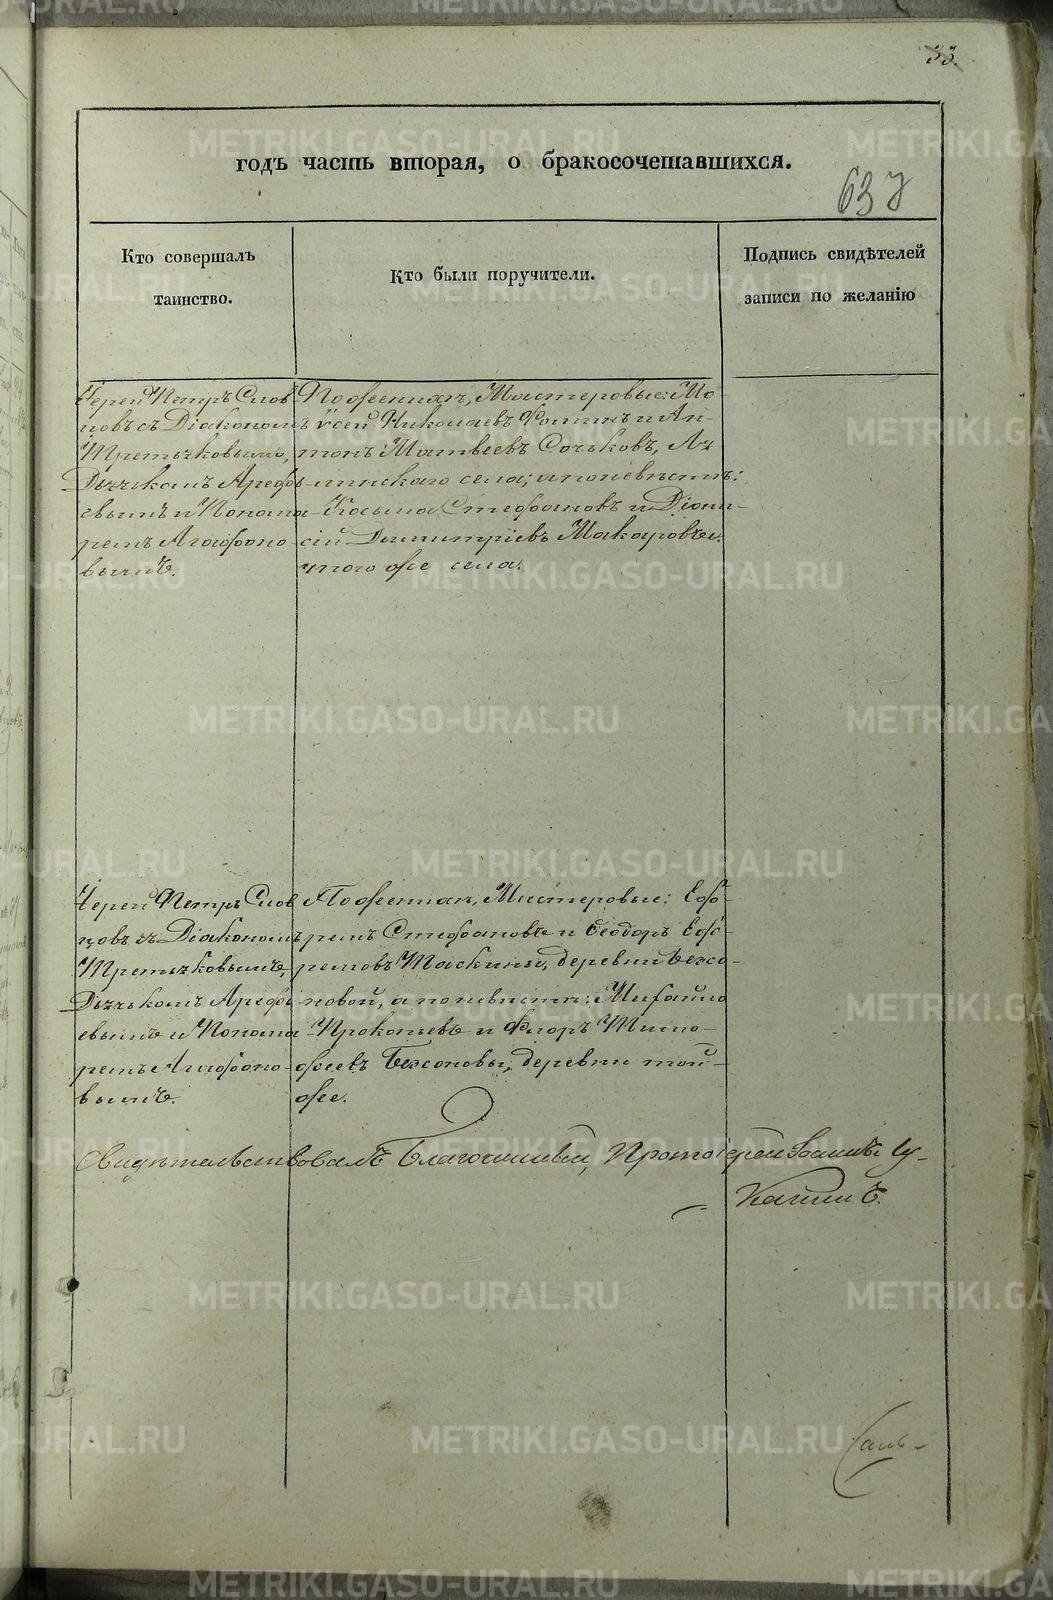 33.
годъ часть вторая, о бракосочетавшихся.
637
Кто совершалъ
таинство.
Кто были поручители.
Подпись свидѣтелей
записи по желанію
Іерей Петръ Слов-
цовъ съ Діакономъ
Третьяковымъ,
Дьячькомъ Арефь-
евымъ и Понома-
ремъ Агафоно-
вымъ.
По женихѣ, Мастеровые: Мо-
ѵсей Николаевъ Фоминъ и Ан-
тонъ Матвеевъ Соськовъ,
села; а по невѣстѣ:
Косьма Стефановъ и Діони-
сій Димитріевъ Макаровы
того же села.
Іерей Петръ Слов
цовъ съ Діакономъ
Третьяковымъ,
Дьячькомъ Арефь
евымъ и Понома
ремъ Агафоно-
вымъ.
По женихѣ, Мастеровые: Еф-
ремъ Стефановъ и Ѳеодоръ Еф-
ремовъ Таскины, деревни Безсо-
новой, а по невѣстѣ: Михайло
Прокопьевъ и Флоръ Тимо-
феевъ Безсоновы, деревни той-
же.
Свидѣтельствовалъ Благочинный, Протоіерей Іоаннъ
METRIKI.GASO-URAL.RU